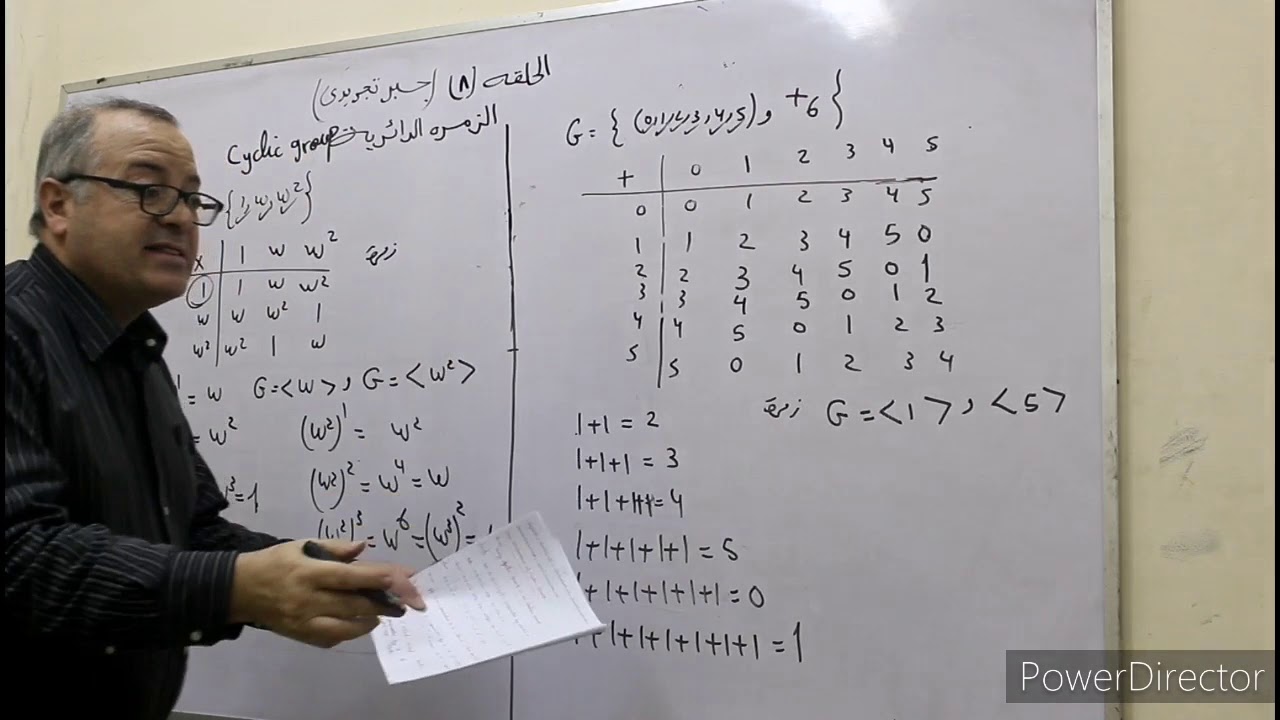 الحلقه (٨) (جبر تجريدى)
Cyclic group الزمره الدائريه
{1, w, w²}
x | 1 w w²
1 | 1 w w²
w | w w² 1
w² | w² 1 w
زمرة
¹ = w G=<w>, G=<w²>
= w² (w²)¹ = w²
w³=1 (w²)² = w⁴ = w
(w²)³ = w⁶ = (w³)² =
G = { (0,1,2,3,4,5) , +₆ }
+ | 0 1 2 3 4 5
0 | 0 1 2 3 4 5
1 | 1 2 3 4 5 0
2 | 2 3 4 5 0 1
3 | 3 4 5 0 1 2
4 | 4 5 0 1 2 3
5 | 5 0 1 2 3 4
زمرة G = <1>, <5>
1+1 = 2
1+1+1 = 3
1+1+1+1=4
1+1+1+1+1 = 5
1+1+1+1+1+1 = 0
1+1+1+1+1+1+1 = 1
PowerDirector